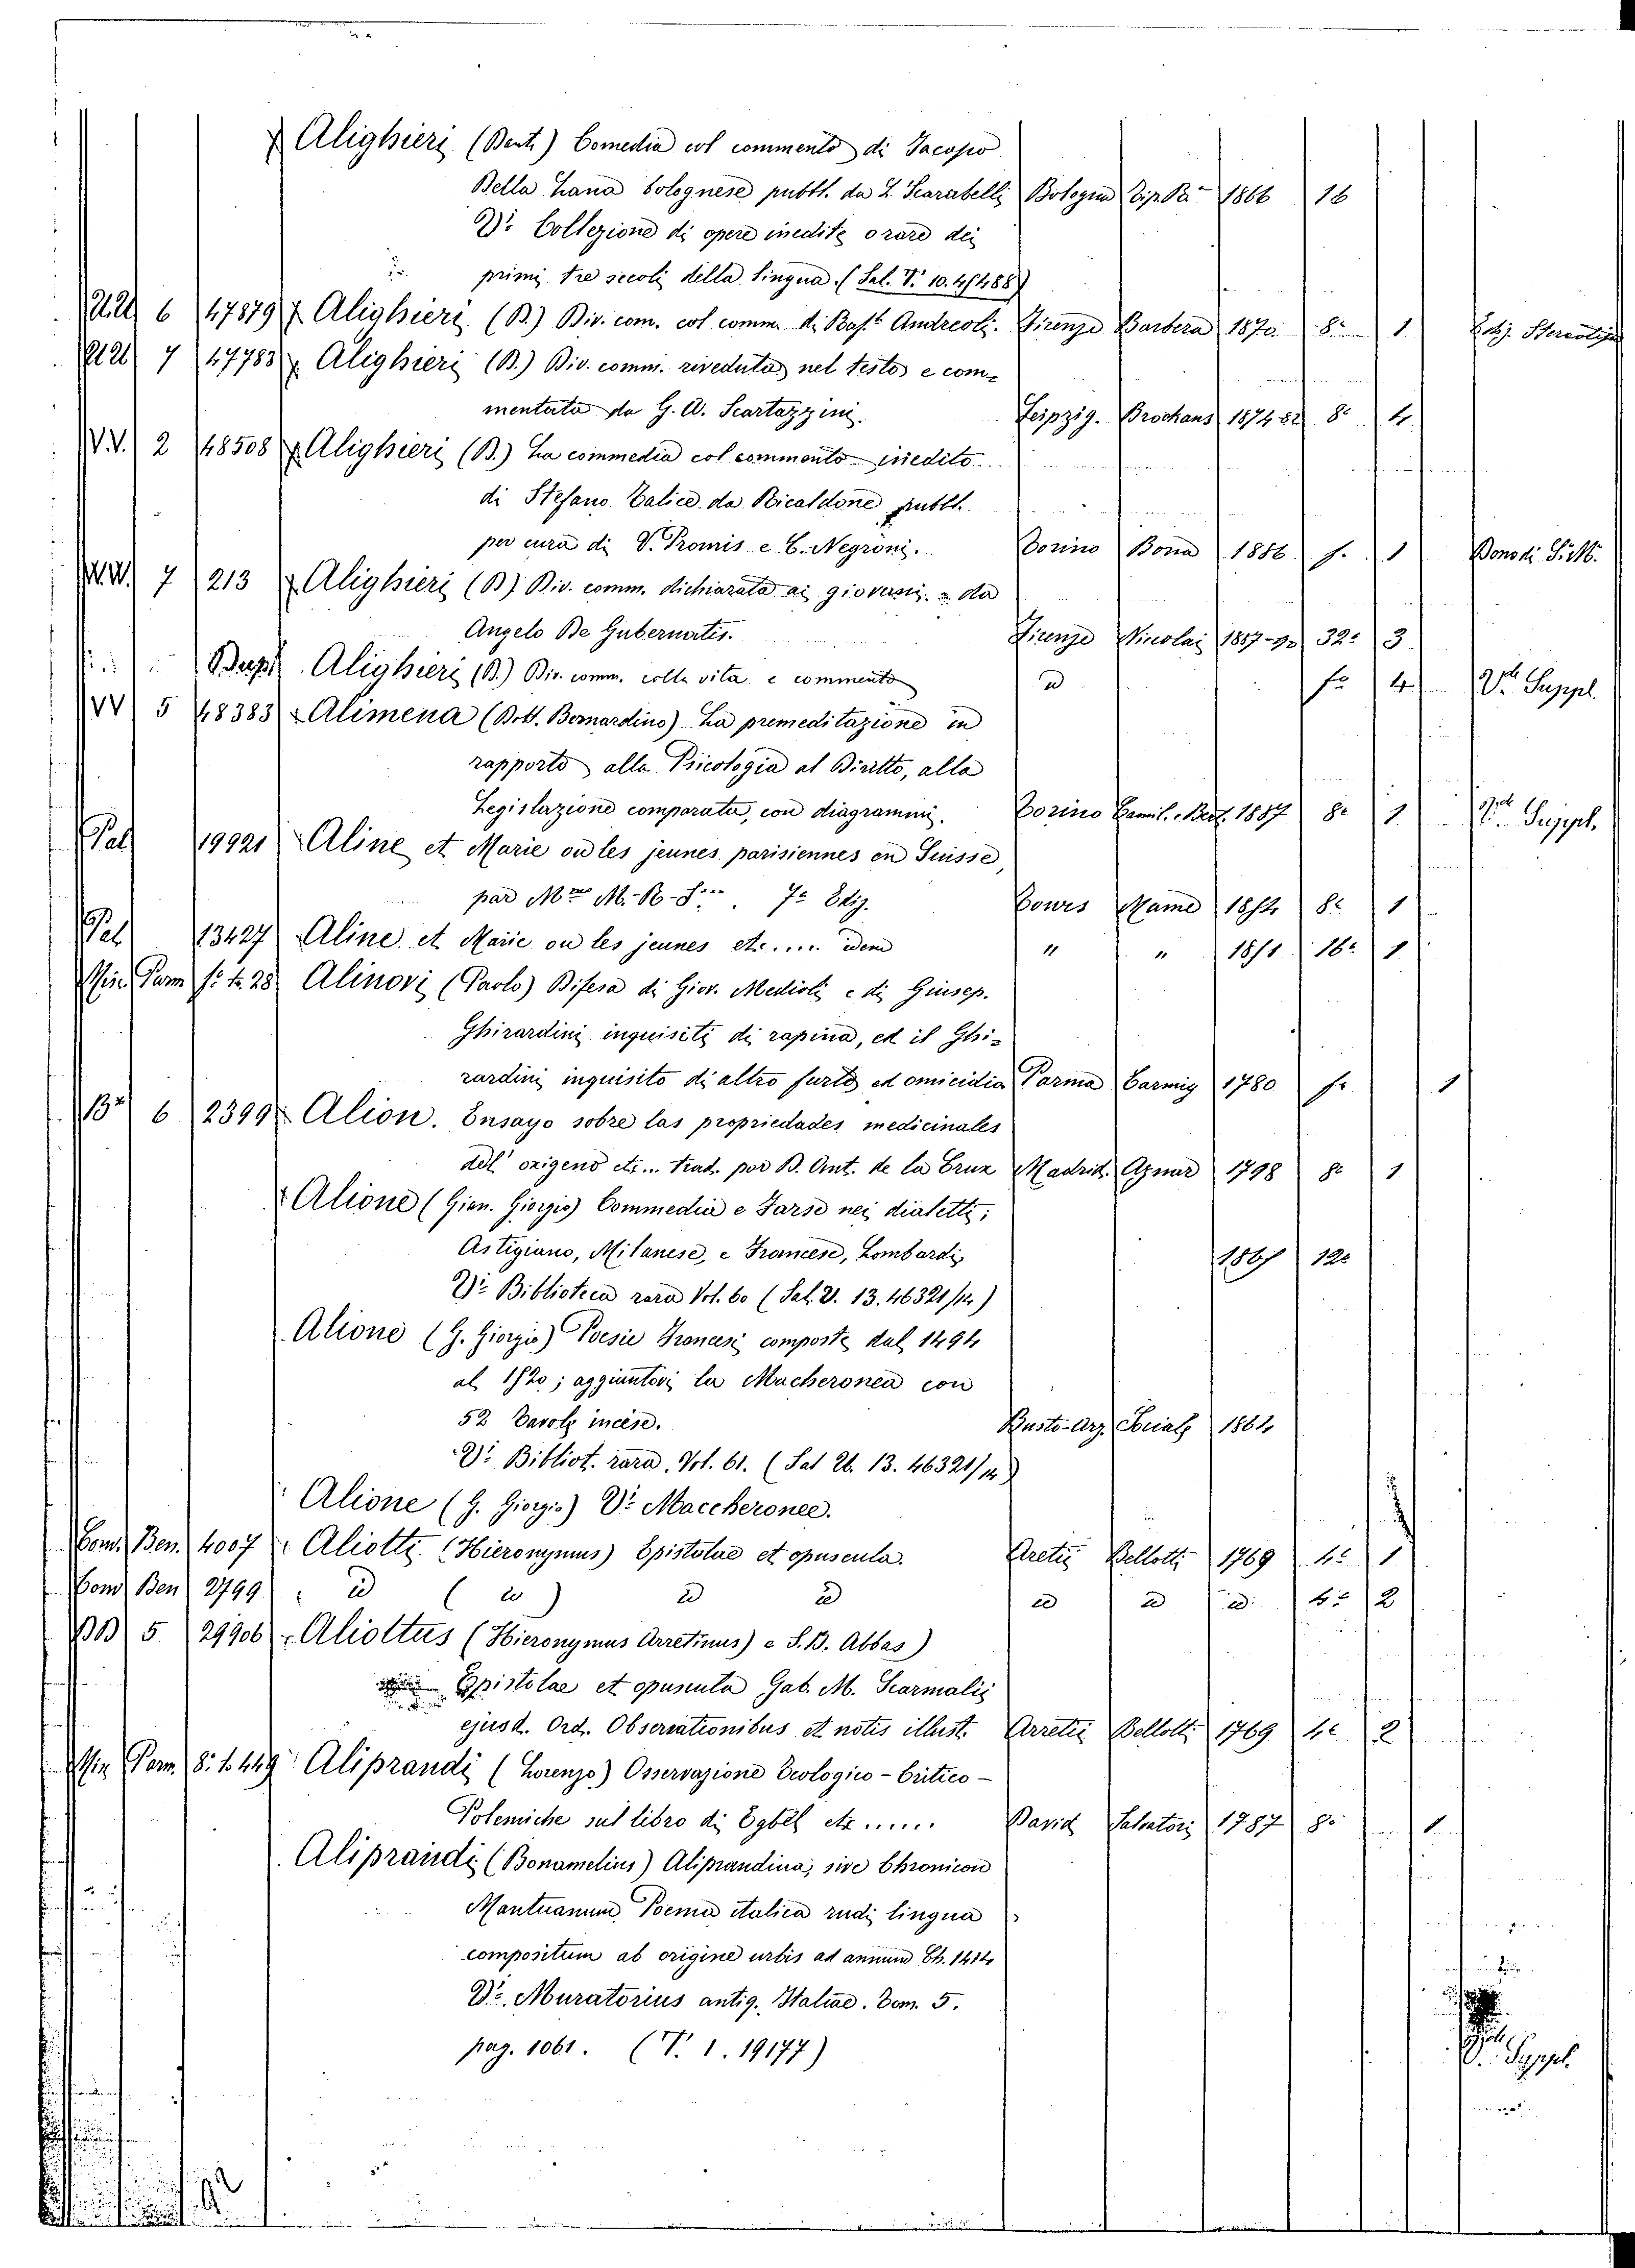 Alighieri (Dante) Comedia col commento di Jacopo
Della Lana bolognese pubbl. da L. Scarabelli Bologna Tip. R.ª 1866 16
V.i Collezione di opere inedite o rare dei
primi tre secoli della lingua. (Sal. V. 10. 41488)
6 47879 Alighieri (D.) Div. com. col comm. di Bap.ta Andreoli. Firenze Barbera 1870 8º 1 Ediz. Stereotipa
7 47783 Alighieri (D.) Div. comm. riveduta nel testo e com=
mentata da G. A. Scartazzini. Leipzig. Brockaus 1874-82 8º 4
V.V. 2 48508 Alighieri (D.) La commedia col commento inedito
di Stefano Talice da Ricaldone pubbl.
per cura di V. Promis e C. Negroni. Torino Bona 1886 f. 1 Dono di S. M.
7 213 Alighieri (D.) Div. comm. dichiarata ai giovani da
Angelo De Gubernatis. Firenze Nicolai 1887-90 32º 3
Alighieri (D.) Div. comm. colla vita e commento id fº 4 V. Suppl.
VV 5 48383 Alimena (Dott. Bernardino) La premeditazione in
rapporto alla Psicologia al Diritto, alla
Legislazione comparata, con diagrammi. Torino 1887 8º 1 Suppl.
Pal 19921 Aline et Marie ou les jeunes parisiennes en Suisse,
par M.me M.-B-S.... 7ª Ediz. Tours Mame 1854 8º 1
Pal 13427 Aline et Marie ou les jeunes etc..... idem " " 1851 16º 1
Min. Parm fº t. 28 Alinovi (Paolo) Difesa di Giov. Medioli e di Giusep.
Ghirardini inquisiti di rapina, ed il Ghi-
rardini inquisito di altro furto ed omicidio Parma Carmig 1780 fº 1
6 2399 Alion. Ensayo sobre las propriedades medicinales
del oxigeno etc... trad. por D. Ant. de la Cruz Madrid. Aznar 1798 8º 1
Alione (Gian. Giorgio) Commedia e Farse nei dialetti;
Astigiano, Milanese, e Francese, Lombardi 1865 12º
V.i Biblioteca rara Vol. 60 (Sal. V. 13. 46321/14)
Alione (G. Giorgio) Poesie Francesi composte dal 1494
al 1520; aggiuntovi la Macheronea con
52 Tavole incise. Busto-Arz. Sociale 1864
V.i Bibliot. rara. Vol. 61. (Sal V. 13. 46321/14)
Alione (G. Giorgio) V.i Maccheronee.
Com. Ben. 4007 Aliotti (Hieronymus) Epistolae et opuscula. Aretii Bellotti 1769 4º 1
Com Ben 2799 id (id) id id id id id 4º 2
BB 5 29906 Aliottus (Hieronymus Arretinus) e S. B. Abbas)
Epistolae et opuscula Gab. M. Scarmalii
ejusd. Ord. Observationibus et notis illust. Arretii Bellotti 1769 4º 2
Min Parm. 8º t. 449 Aliprandi (Lorenzo) Osservazione Teologico-Critico-
Polemiche sul libro di Eybel etc...... Pavia Salvatori 1787 8º 1
Aliprandi (Bonamelius) Aliprandina, sive Chronicon
Mantuanum Poema italica rudi lingua
compositum ab origine urbis ad annum Ch. 1414
V.i Muratorius antiq. Italiae. Tom. 5.
pag. 1061. (T. 1. 19177) V. Suppl.